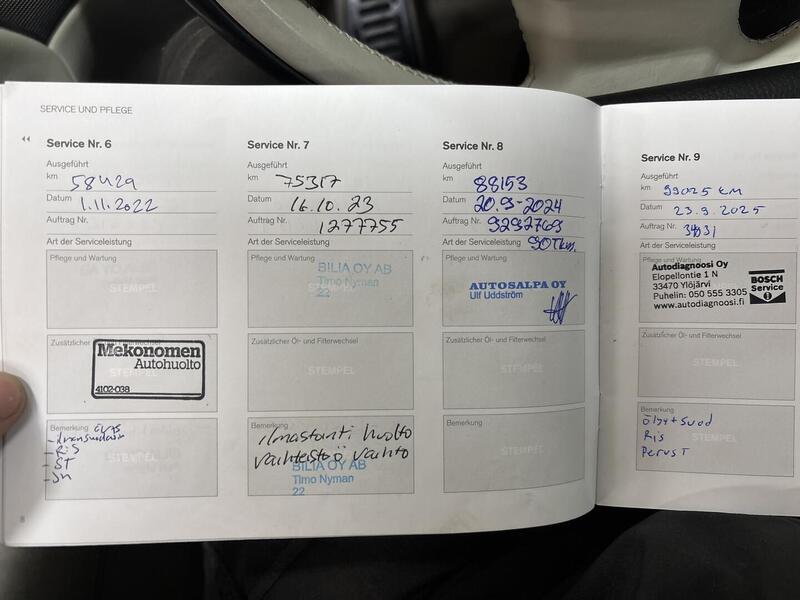 SERVICE UND PFLEGE
Service Nr. 6
Ausgeführt
km 58429
Datum 1.11.2022
Auftrag Nr.
Art der Serviceleistung
Pflege und Wartung
STEMPEL
Zusätzlicher Öl- und Filterwechsel
Mekonomen
Autohuolto
4102-038
Bemerkung
STEMPEL
- RiS
- ST
Service Nr. 7
Ausgeführt
km 75317
Datum 16.10.23
Auftrag Nr. 1277755
Art der Serviceleistung
Pflege und Wartung
BILIA OY AB
Timo Nyman
22
Zusätzlicher Öl- und Filterwechsel
STEMPEL
Bemerkung
ilmastointi huolto
vaihteistoö vaihto
BILIA OY AB
Timo Nyman
22
Service Nr. 8
Ausgeführt
km 88153
Datum 20.9-2024
Auftrag Nr. 9292769
Art der Serviceleistung 90Tkm.
Pflege und Wartung
AUTOSALPA OY
Ulf Uddström
Zusätzlicher Öl- und Filterwechsel
STEMPEL
Bemerkung
STEMPEL
8
Service Nr. 9
Ausgeführt
km 99025 KM
Datum 23.9.2025
Auftrag Nr. 34031
Art der Serviceleistung
Pflege und Wartung
Autodiagnoosi Oy
Elopellontie 1 N
33470 Ylöjärvi
Puhelin: 050 555 3305
www.autodiagnoosi.fi
BOSCH
Service
Zusätzlicher Öl- und Filterwechsel
STEMPEL
Bemerkung
öljy + suod
Ris
Perus T
STEMPEL